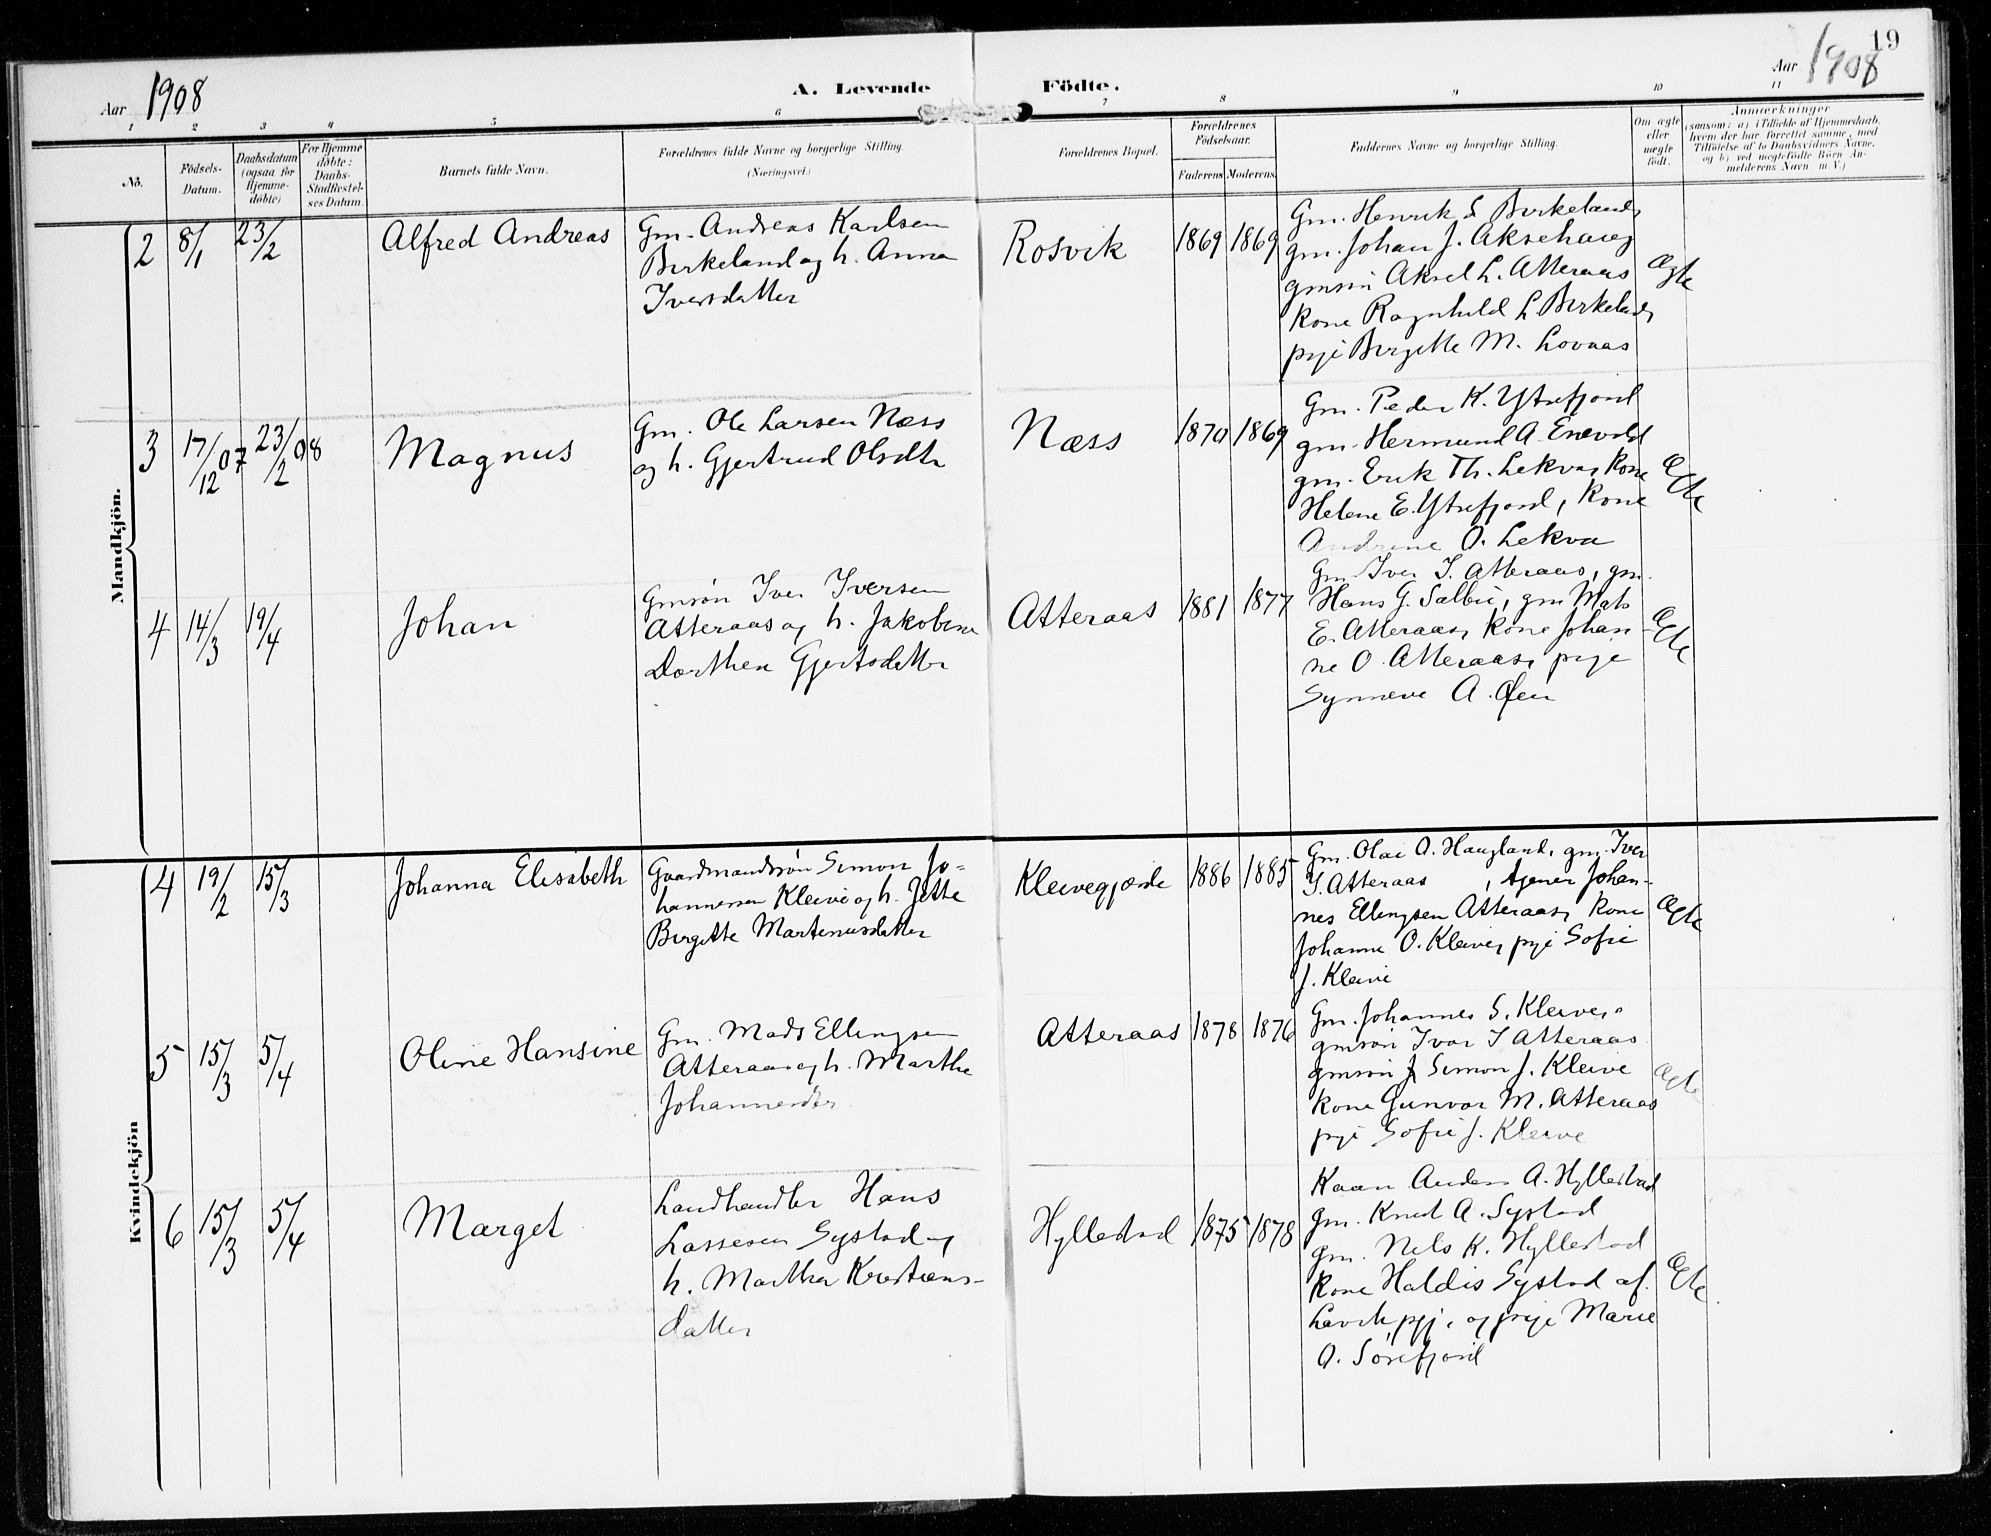 19
Aar 1908
A. Levende Födte.
Aar 1908
1 2 3 4 5 6 7 8 9 10 11
No.
Födsels-Datum.
Daabsdatum (ogsaa for Hjemme-döbte)
For Hjemme döbte: Daabs-Stadfæstel-ses Datum.
Barnets fulde Navn.
Forældrenes fulde Navne og borgerlige Stilling.
(Næringsvei.)
Forældrenes Bopæl.
Forældrenes Födselsaar.
Faderens. Moderens.
Faddernes Navne og borgerlige Stilling.
Om ægte eller uægte födt.
Anmærkninger
(saasom: a) i Tilfælde af Hjemmedaab, hvem der har forrettet samme, med Tilföielse af to Daabsvidners Navne, og b) ved uægtefödte Börn An-melderens Navn m. V.)
Mandkjön.
2 8/1 23/2 Alfred Andreas
Gm. Andreas Karlsen
Birkeland og h. Anna
Iversdatter
Rosvik 1869 1869
Gm. Henrik S Birkeland,
gm. Johan J. Aksehaug
gmsøn Aksel L. Atteraas
kone Ragnhild L Birkeland,
pige Birgitte M. Lovaas
Ægte
3 17/12 07 23/2 08 Magnus
Gm. Ole Larsen Næss
og h. Gjertrud Olsdtr
Næss 1870 1869
Gm. Peder K. Ytrefjord
gm. Hermund A. Enevold
gm. Erik Th. Lekva, kone
Helene E. Ytrefjord, kone
Andrine O. Lekva
Ægte
4 14/3 19/4 Johan
Gmsøn Iver Iversen
Atteraas og h. Jakobine
Dorthea Gjertsdatter
Atteraas 1881 1877
Gm. Iver I. Atteraas, gm.
Hans G. Sælbu, gm Mats
E. Atteraas, kone Johan-
ne O. Atteraas, pige
Synneve A. Øen
Ægte
Kvindekjön
4 19/2 15/3 Johanna Elisabeth
Gaardmandssøn Simon Jo-
hannessen Kleive og h. Jette
Birgitte Martinusdatter
Kleivegjærde 1886 1885
Gm. Olai A. Haugland, gm. Iver
I. Atteraas, tjener Johan-
nes Ellingsen Atteraas, kone
Johanne O. Kleive, pige Sofie
J. Kleive
Ægte
5 15/3 5/4 Oline Hansine
Gm. Mads Ellingsen
Atteraas og h. Marthe
Johannesdtr
Atteraas 1878 1876
Gm. Johannes S. Kleive,
gmsøn Ivar I Atteraas
gmsøn J Simon J. Kleive
kone Gunvor M. Atteraas
pige Sofie J. Kleive
Ægte
6 15/3 5/4 Marget
Landhandler Hans
Lassesen Systad og
h. Martha Kristians-
datter
Hyllestad 1875 1878
Kaan Anders A. Hyllestad
gm. Knut A. Systad
gm. Nels K. Hyllestad
kone Haldis Systad af
Lavik pgj. og pige Marie
O. Sörefjord
Ægte